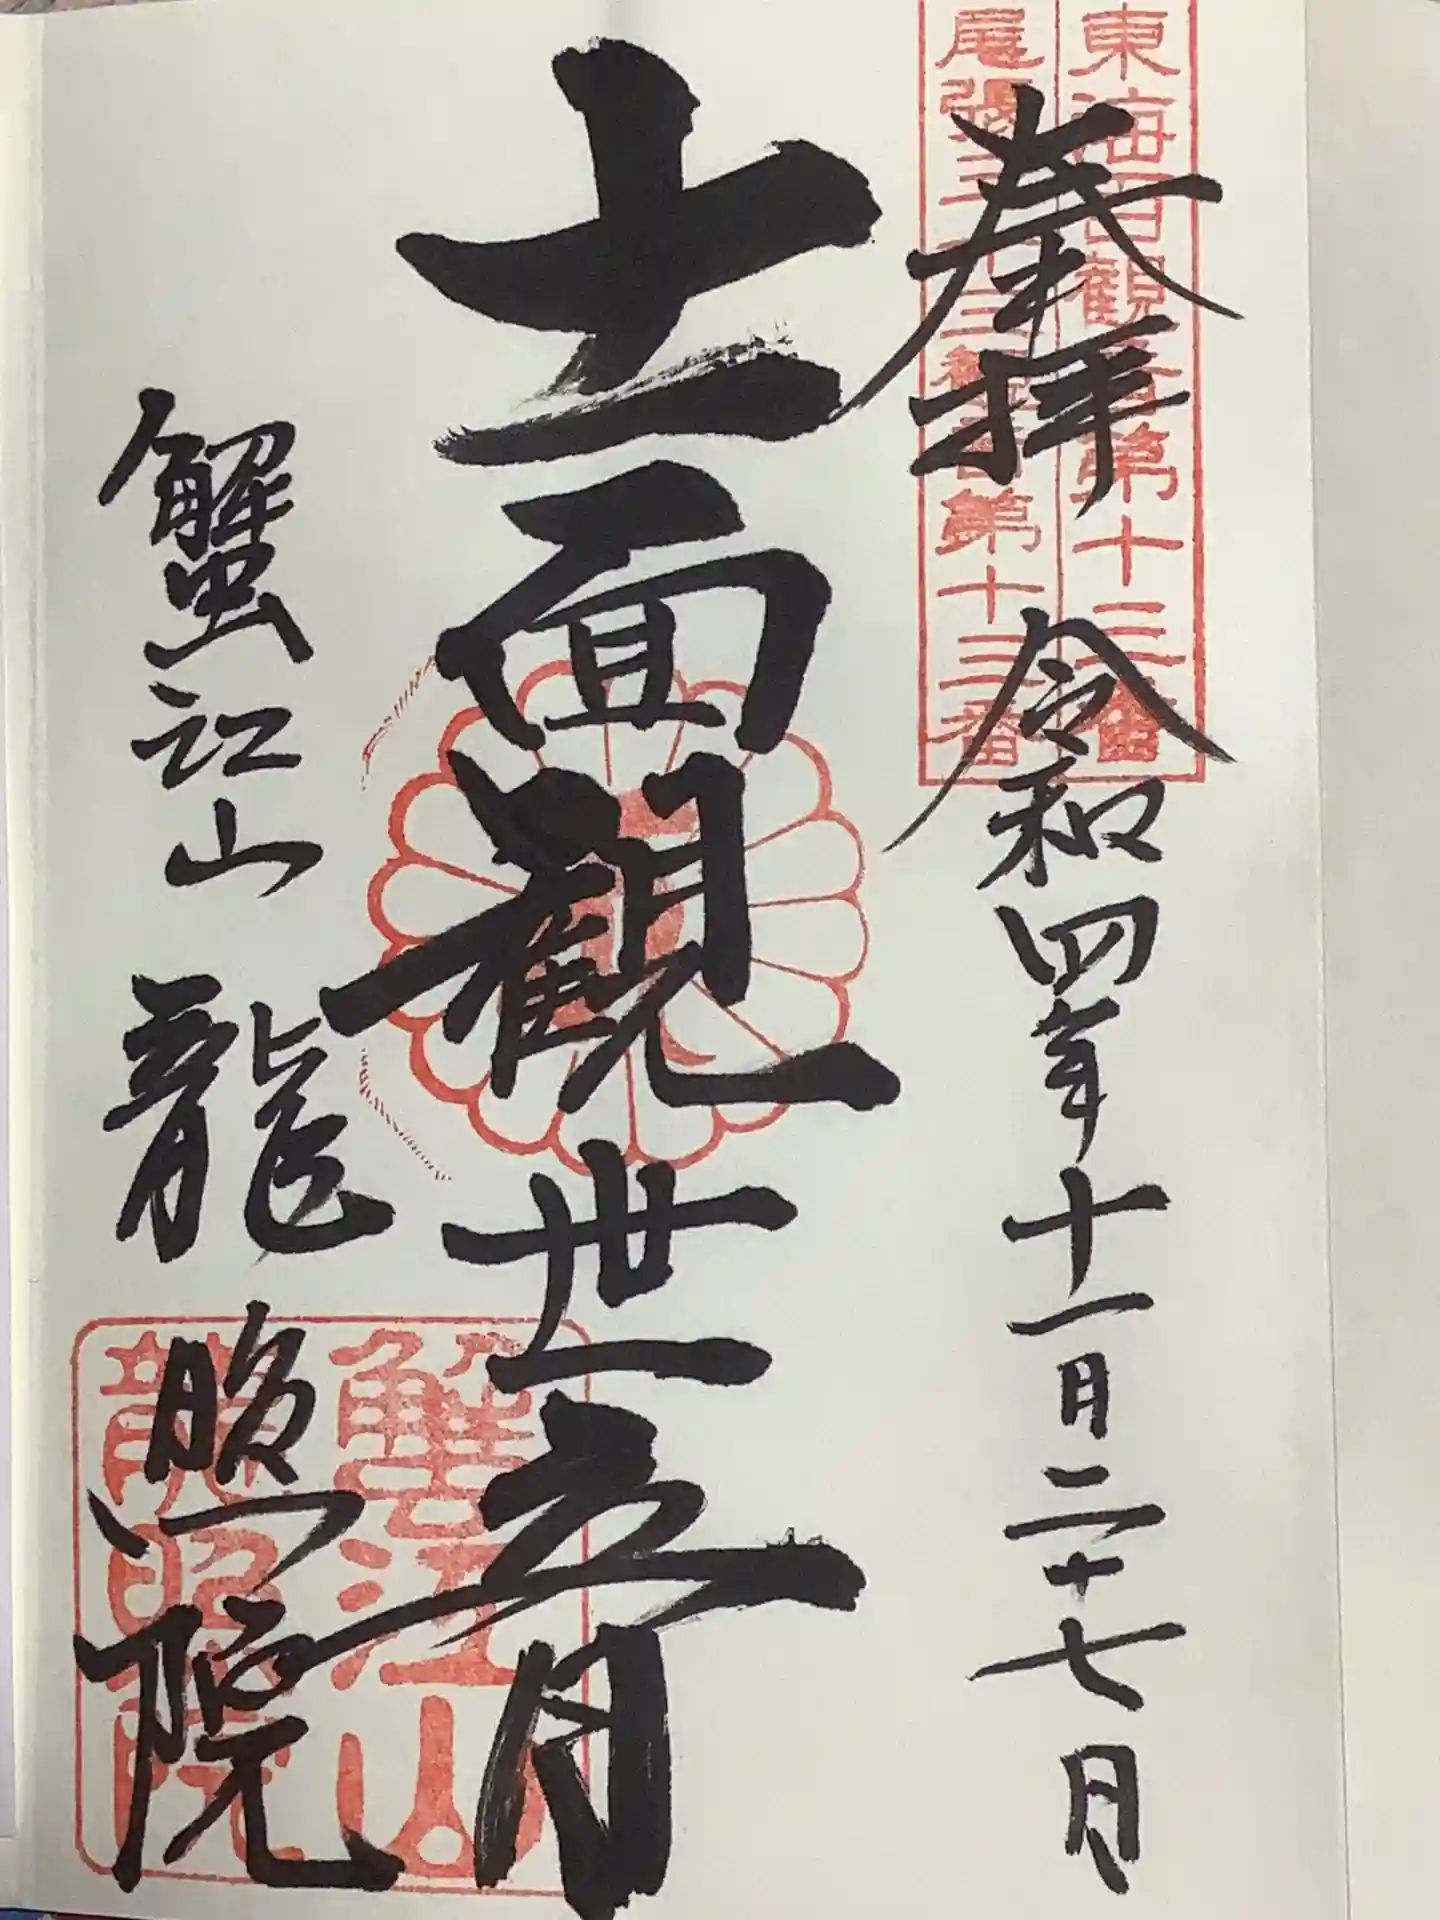 東海白観音第十三番
尾張三十三観音第十三番
奉拝
令和四年十一月二十七日
十一面観世音
蟹江山
龍照院
蟹江山
龍照院